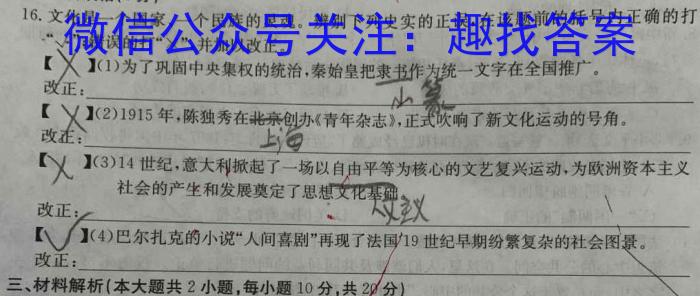 16.文化是一个国家、一个民族的灵魂。辨别下列史实的正误,在该题前的括号内正确的打
微信公众号关注:趣找答案
"√",错误的打"×",并加以改正。
【×】(1)为了巩固中央集权的统治,秦始皇把隶书作为统一文字在全国推广。
改正: 小篆
【×】(2)1915年,陈独秀在北京创办《青年杂志》,正式吹响了新文化运动的号角。
改正: 上海
【×】(3)14世纪,意大利掀起了一场以自由平等为核心的文艺复兴运动,为欧洲资本主义
社会的产生和发展奠定了思想文化基础。
改正: 文主义
【√】(4)巴尔扎克的小说"人间喜剧"再现了法国19世纪早期纷繁复杂的社会图景。
改正:
三、材料解析(本大题共2小题,每小题10分,共20分)